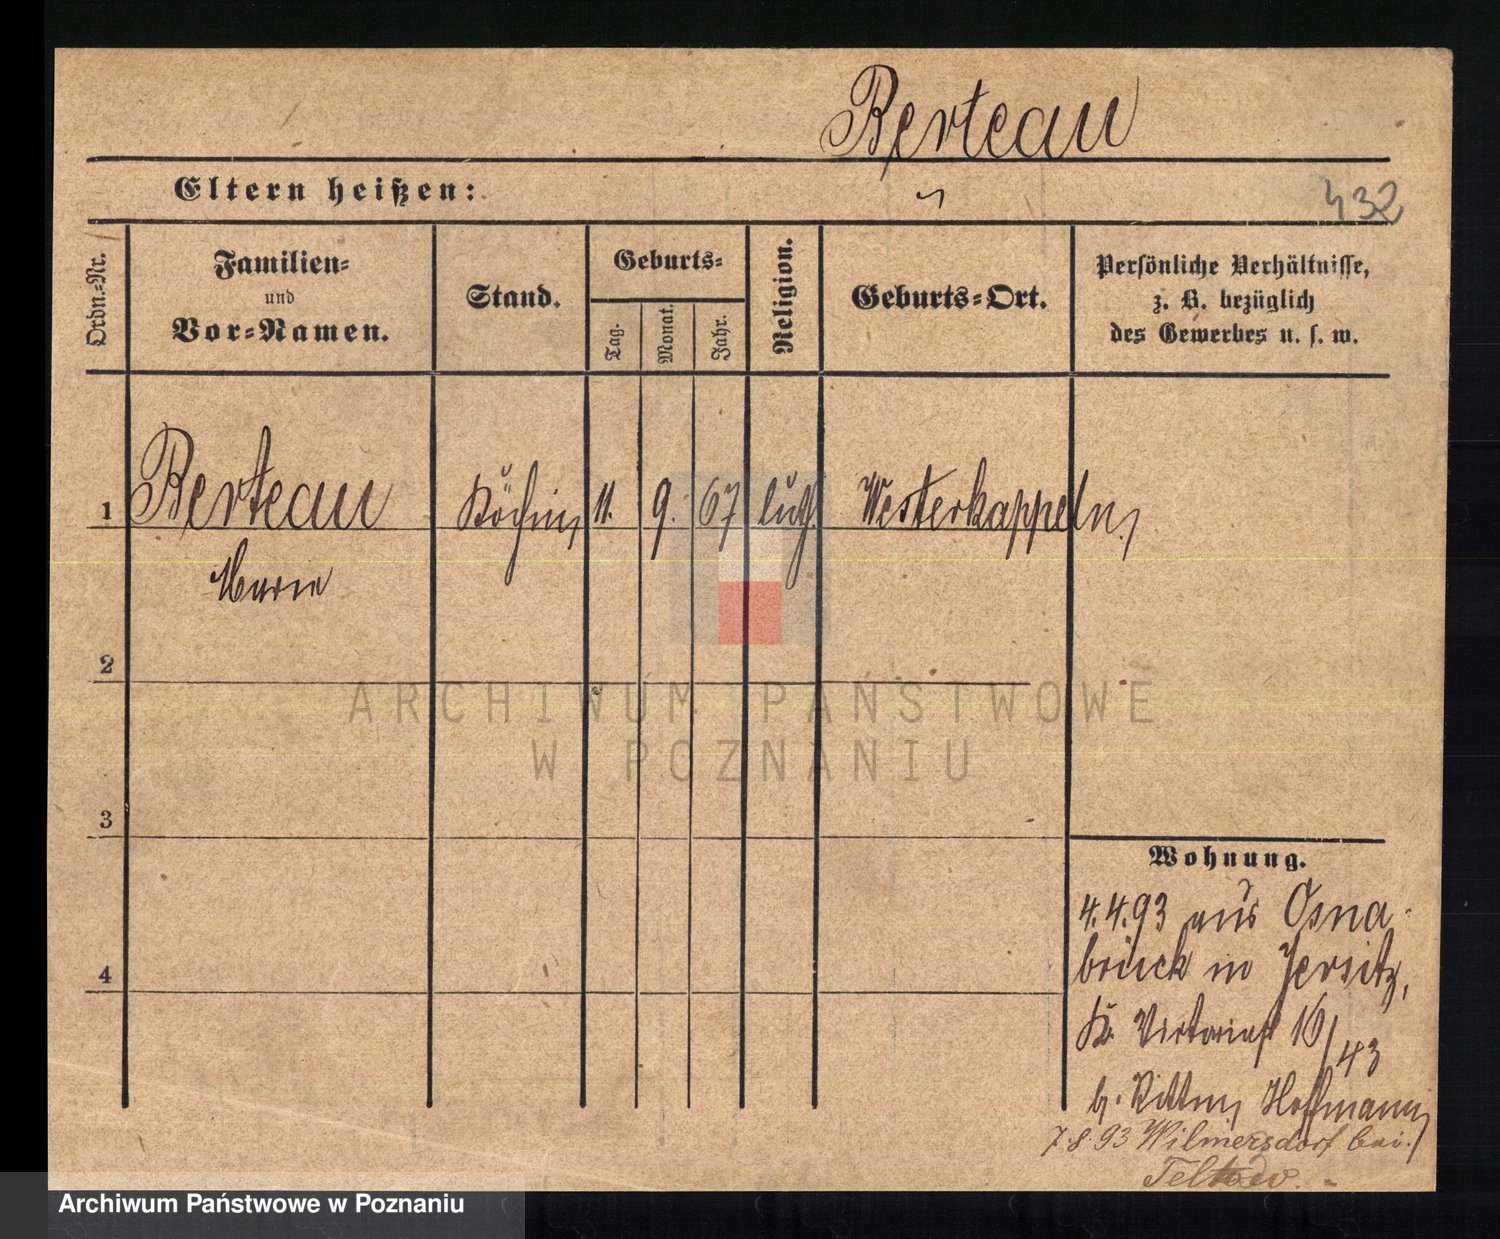 Berteau
Eltern heißen:
432
Ordn.-Nr.
Familien-
und
Vor-Namen.
Stand.
Geburts-
Tag.
Monat.
Jahr.
Religion.
Geburts-Ort.
Persönliche Verhältnisse,
z. B. bezüglich
des Gewerbes u. s. w.
1 Berteau Köchin 11. 9. 67 luth. Westerkappeln
Marie
2
ARCHIWUM PAŃSTWOWE
W POZNANIU
3
Wohnung.
4.4.93 aus Osna-
brück in Jersitz,
Victoriast 16/43
b. Hoffmann
7.8.93 Wilmersdorf bei
Teltow.
4
Archiwum Państwowe w Poznaniu